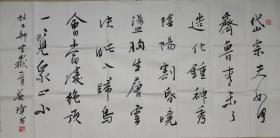 岱宗夫如何
齊魯青未了
造化鍾神秀
陰陽割昏曉
盪胸生層雲
決眥入歸鳥
會當凌絕頂
一覽衆山小
杜工部望嶽一首